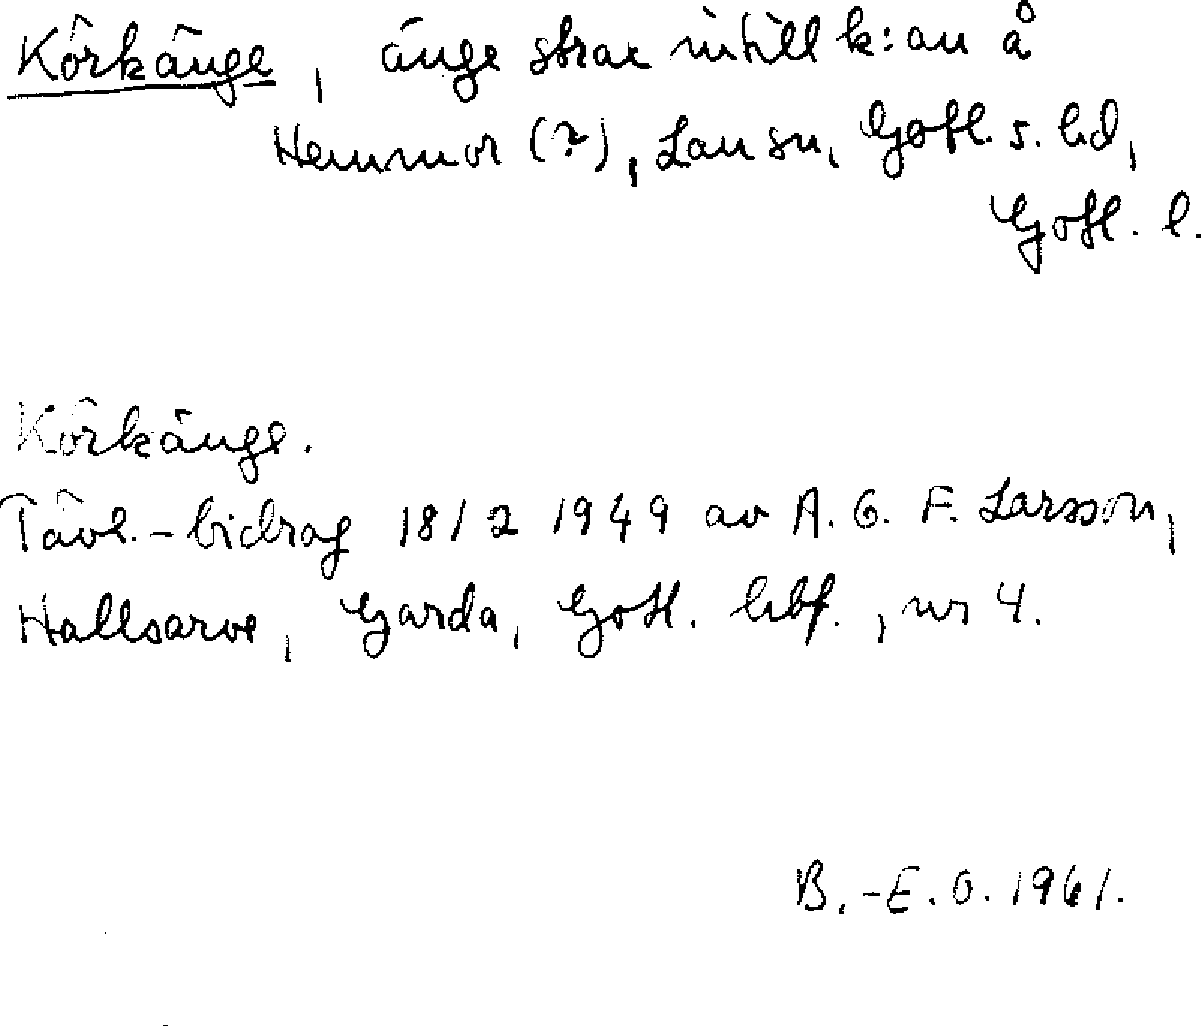 Körkänge, änge strax intill k:an å
Hemmor (?), Lau sn, Gotl. s. hd,
Gotl. l.
Körkänge.
Tävl.-bidrag 18/2 1949 av A. G. F. Larsson,
Hallsarve, Garda, Gotl. hbf., nr 4.
B.-E. O. 1961.